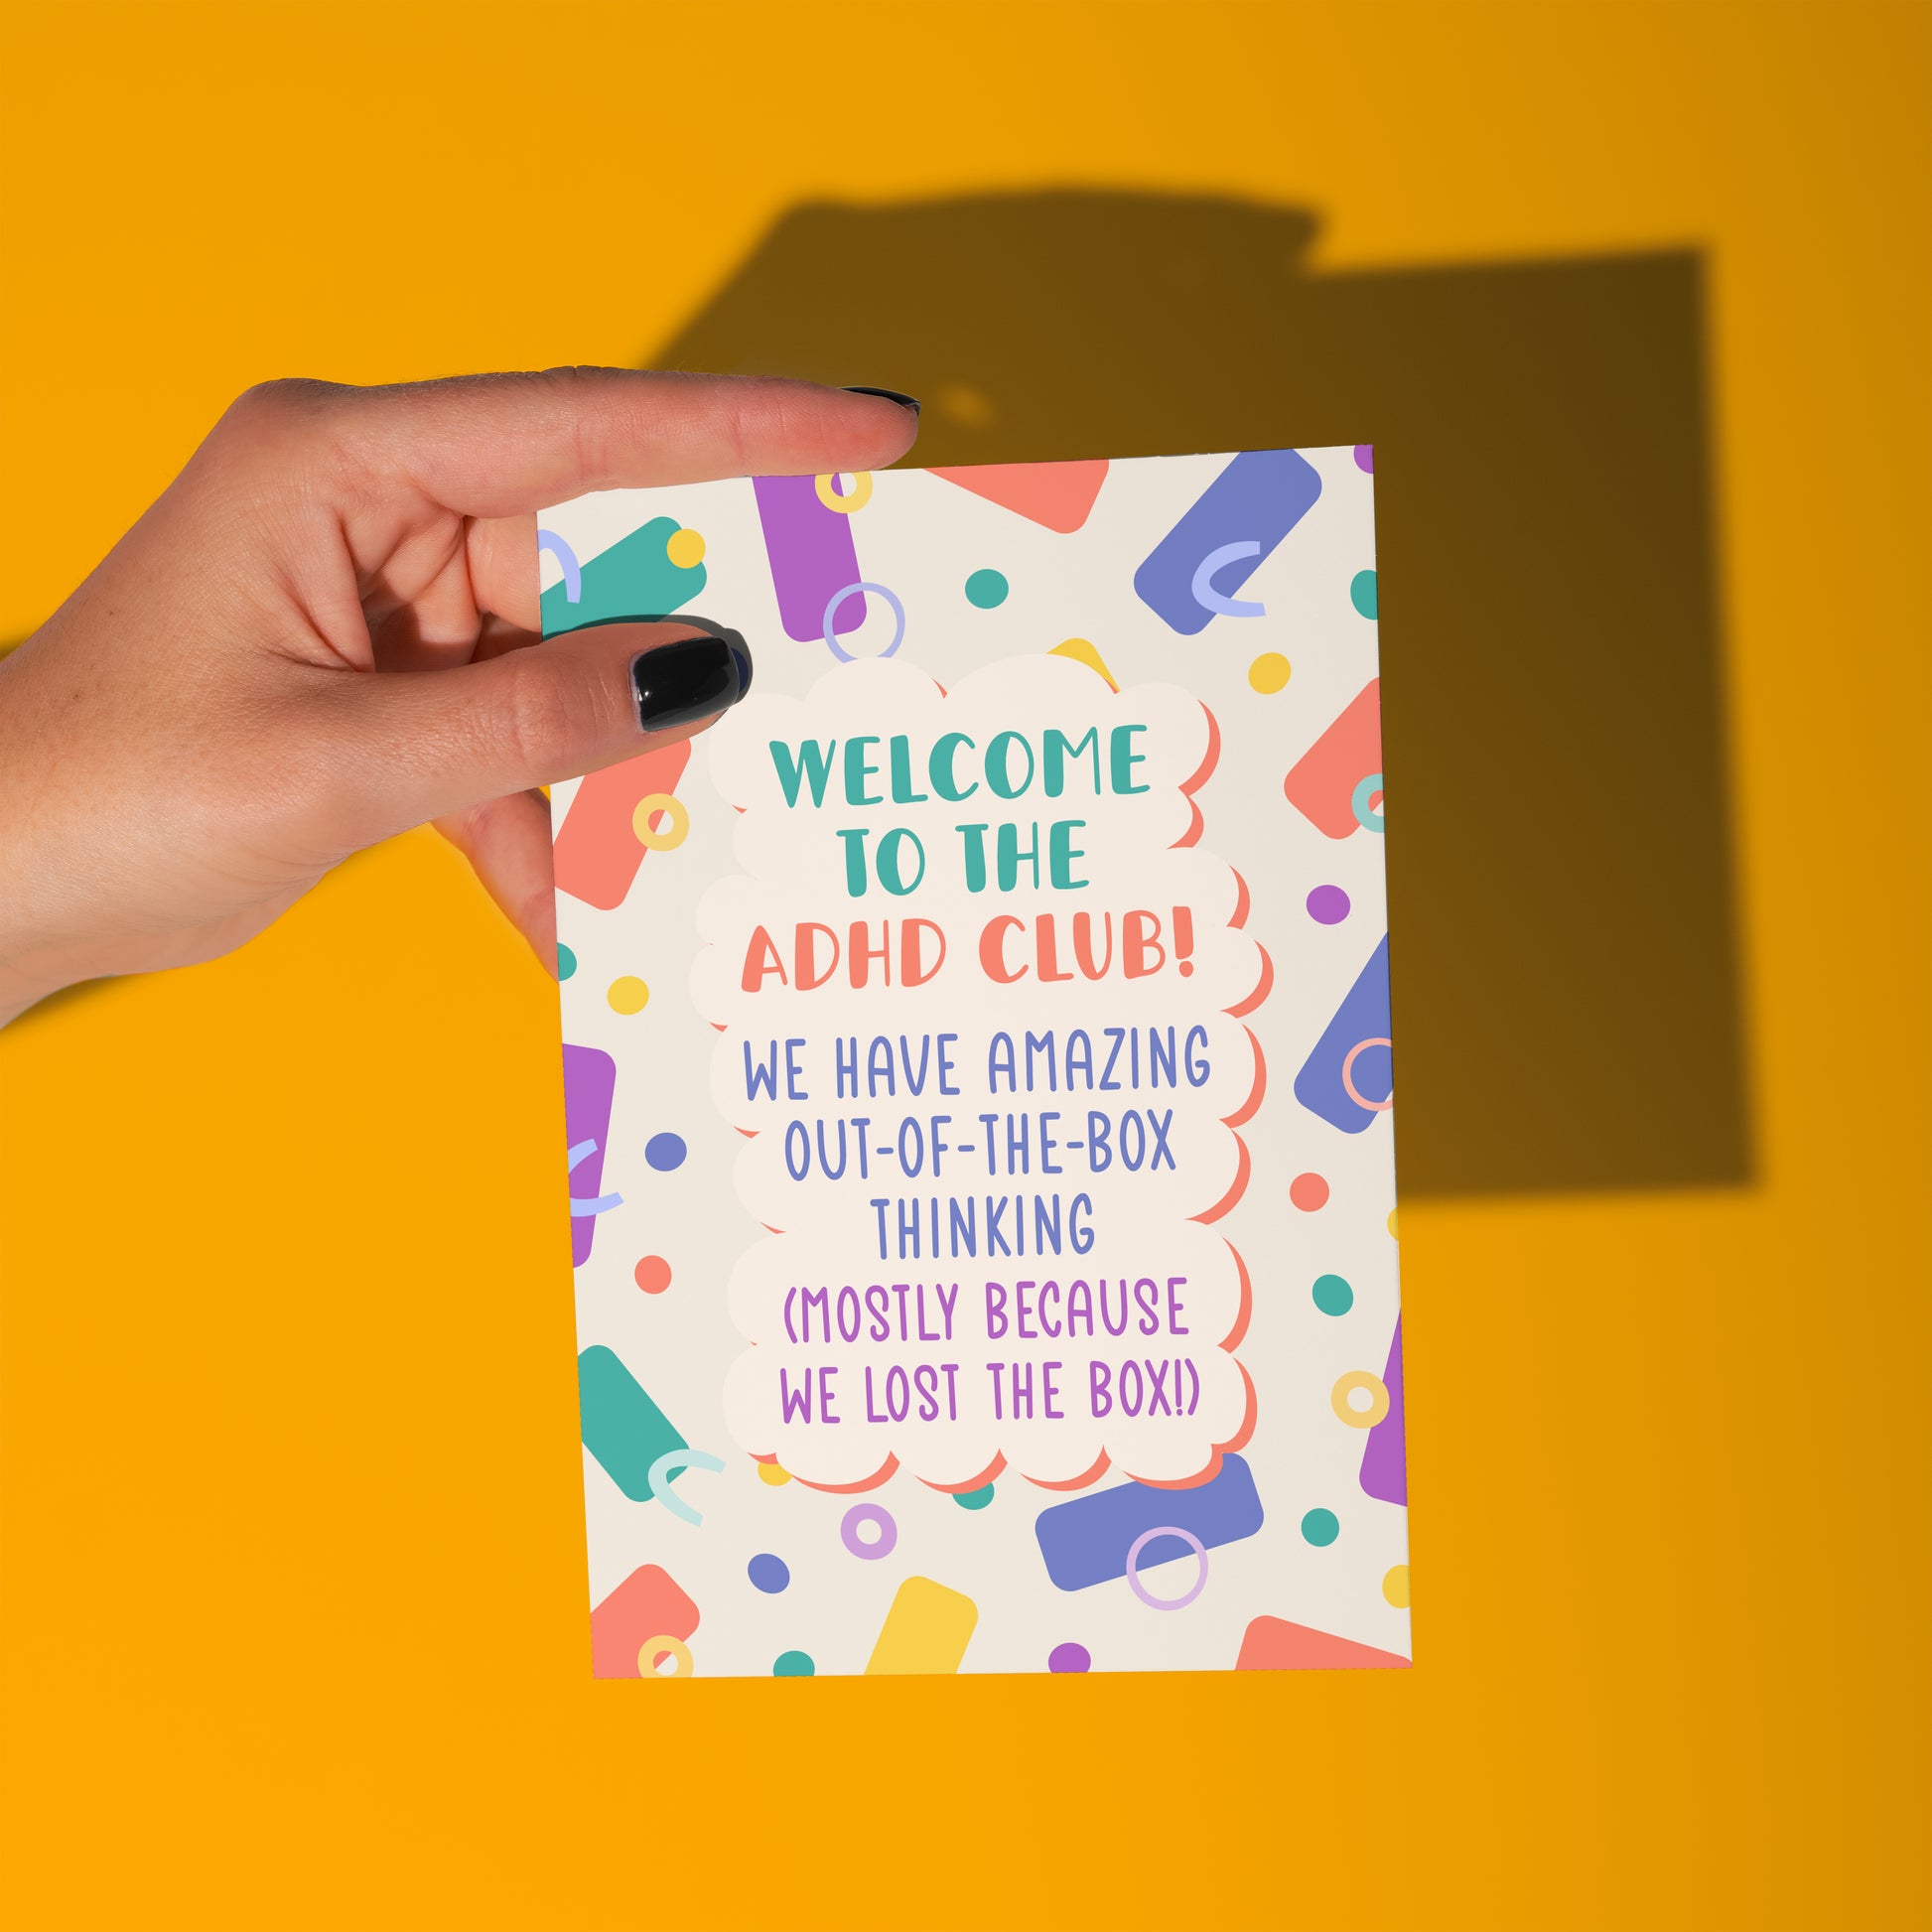 WELCOME
TO THE
ADHD CLUB!
WE HAVE AMAZING
OUT-OF-THE-BOX
THINKING
(MOSTLY BECAUSE
WE LOST THE BOX!)